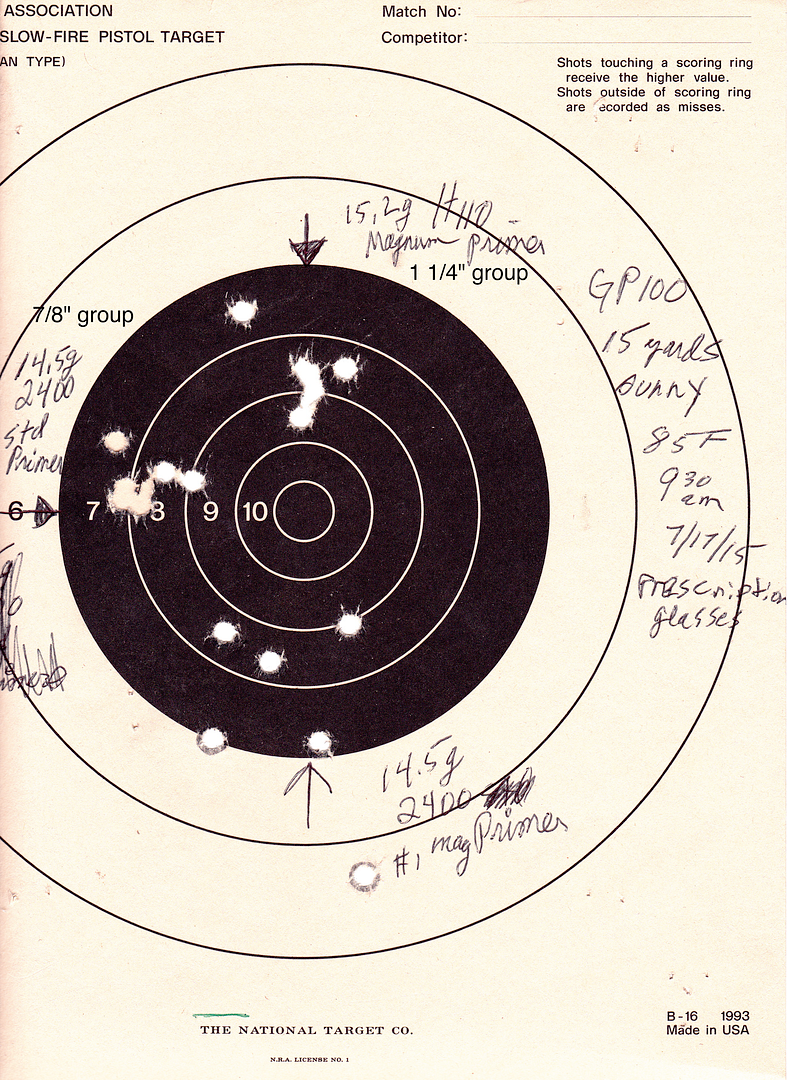 ASSOCIATION
SLOW-FIRE PISTOL TARGET
AN TYPE)
Match No:
Competitor:
Shots touching a scoring ring
receive the higher value.
Shots outside of scoring ring
are ecorded as misses.
15.2g H110
Magnum primer
1 1/4" group
7/8" group
14.5g
2400
Std
Primer
GP100
15 yards
sunny
85 F
9 30
am
7/17/15
Prescription
glasses
6 7 8 9 10
14.5g
2400
#1 mag Primer
THE NATIONAL TARGET CO.
N.R.A. LICENSE NO. 1
B-16 1993
Made in USA